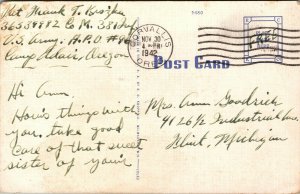 Pvt. Frank T. Brozka
36534882 Co M. 381 Inf
U.S. Army. A.P.O #96
Camp Adair, Oregon
Hi Ann
How's things with
you. take good
care of that sweet
sister of your's
7-650
CORVALLIS
NOV 30
4-PM
1942
OREG.
FREE
POST CARD
Mrs. Ann Goodrich
4126½ Industrial Ave.
Flint, Michigan